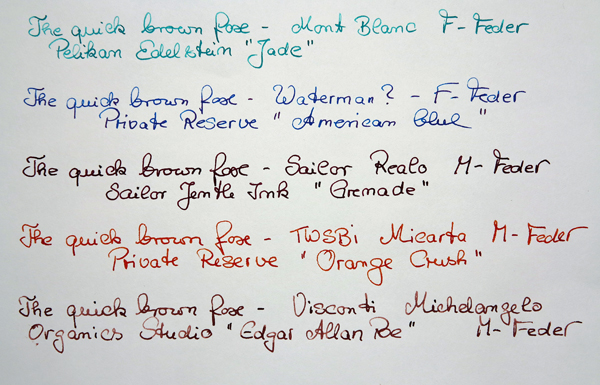 The quick brown foxe - Mont Blanc F-Feder
Pelikan Edelstein "Jade"
The quick brown foxe - Waterman? - F-Feder
Private Reserve "American blue"
The quick brown foxe - Sailor Realo M-Feder
Sailor Jentle Ink "Grenade"
The quick brown foxe - TWSBi Micarta M-Feder
Private Reserve "Orange Crush"
The quick brown foxe - Visconti Michelangelo
Organics Studio "Edgar Allan Poe" M-Feder